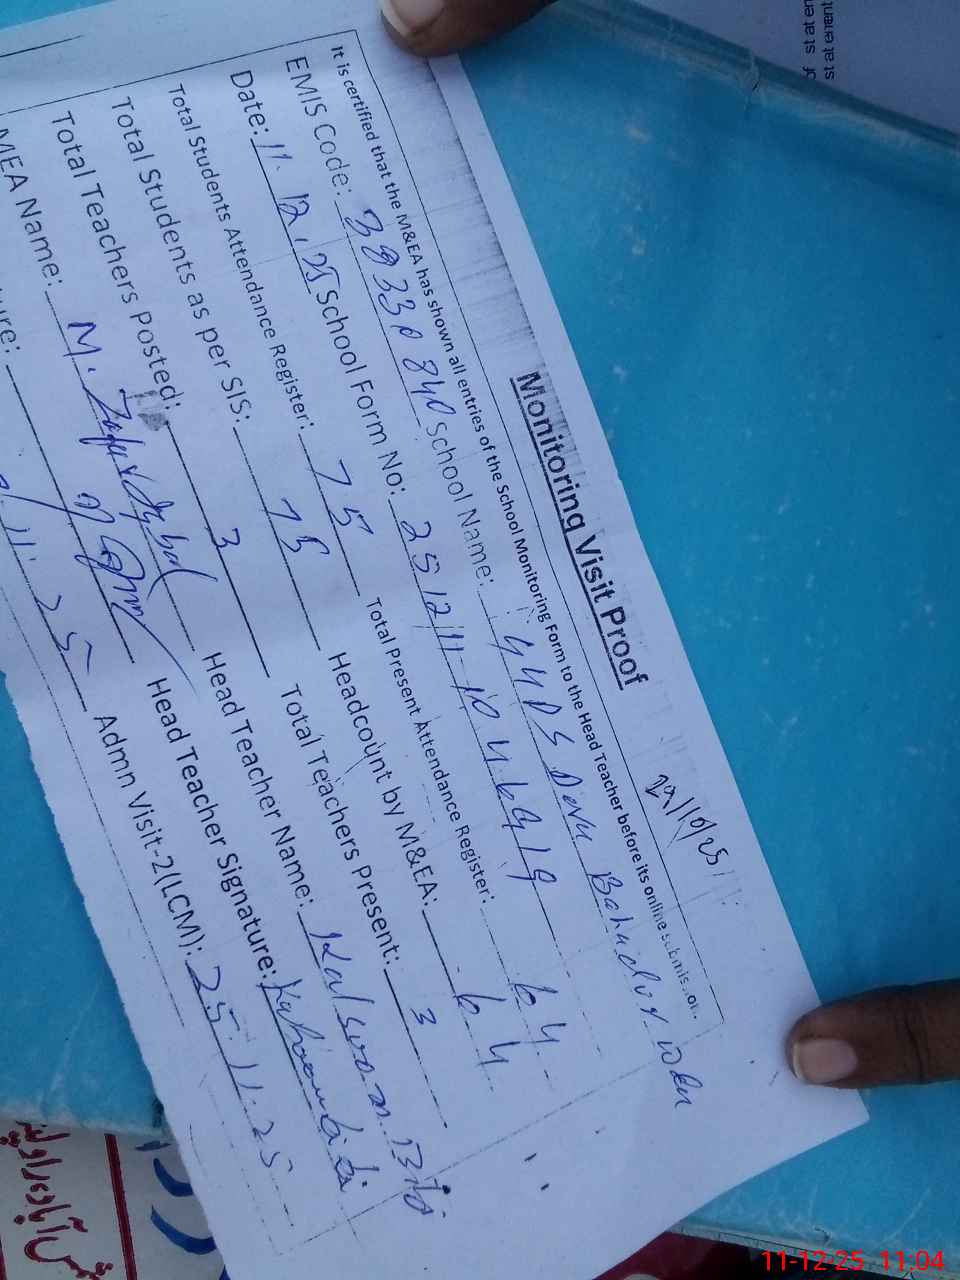 of staten
statement
Monitoring Visit Proof
29/10/25
It is certified that the M&EA has shown all entries of the School Monitoring Form to the Head Teacher before its online submission.
EMIS Code: 38330840 School Name: GGPS Dera Bahadur
Date: 11.12.25 School Form No: 251211-1046919
Total Students Attendance Register: 75 Total Present Attendance Register: 64
Total Students as per SIS: 75 Headcount by M&EA: 64
Total Teachers Posted: 3 Total Teachers Present: 3
MEA Name: M. Head Teacher Name: Kalsoom Bibi
ure: Head Teacher Signature:
11.25 Admn Visit-2(LCM): 25.11.25
11-12-25 11:04